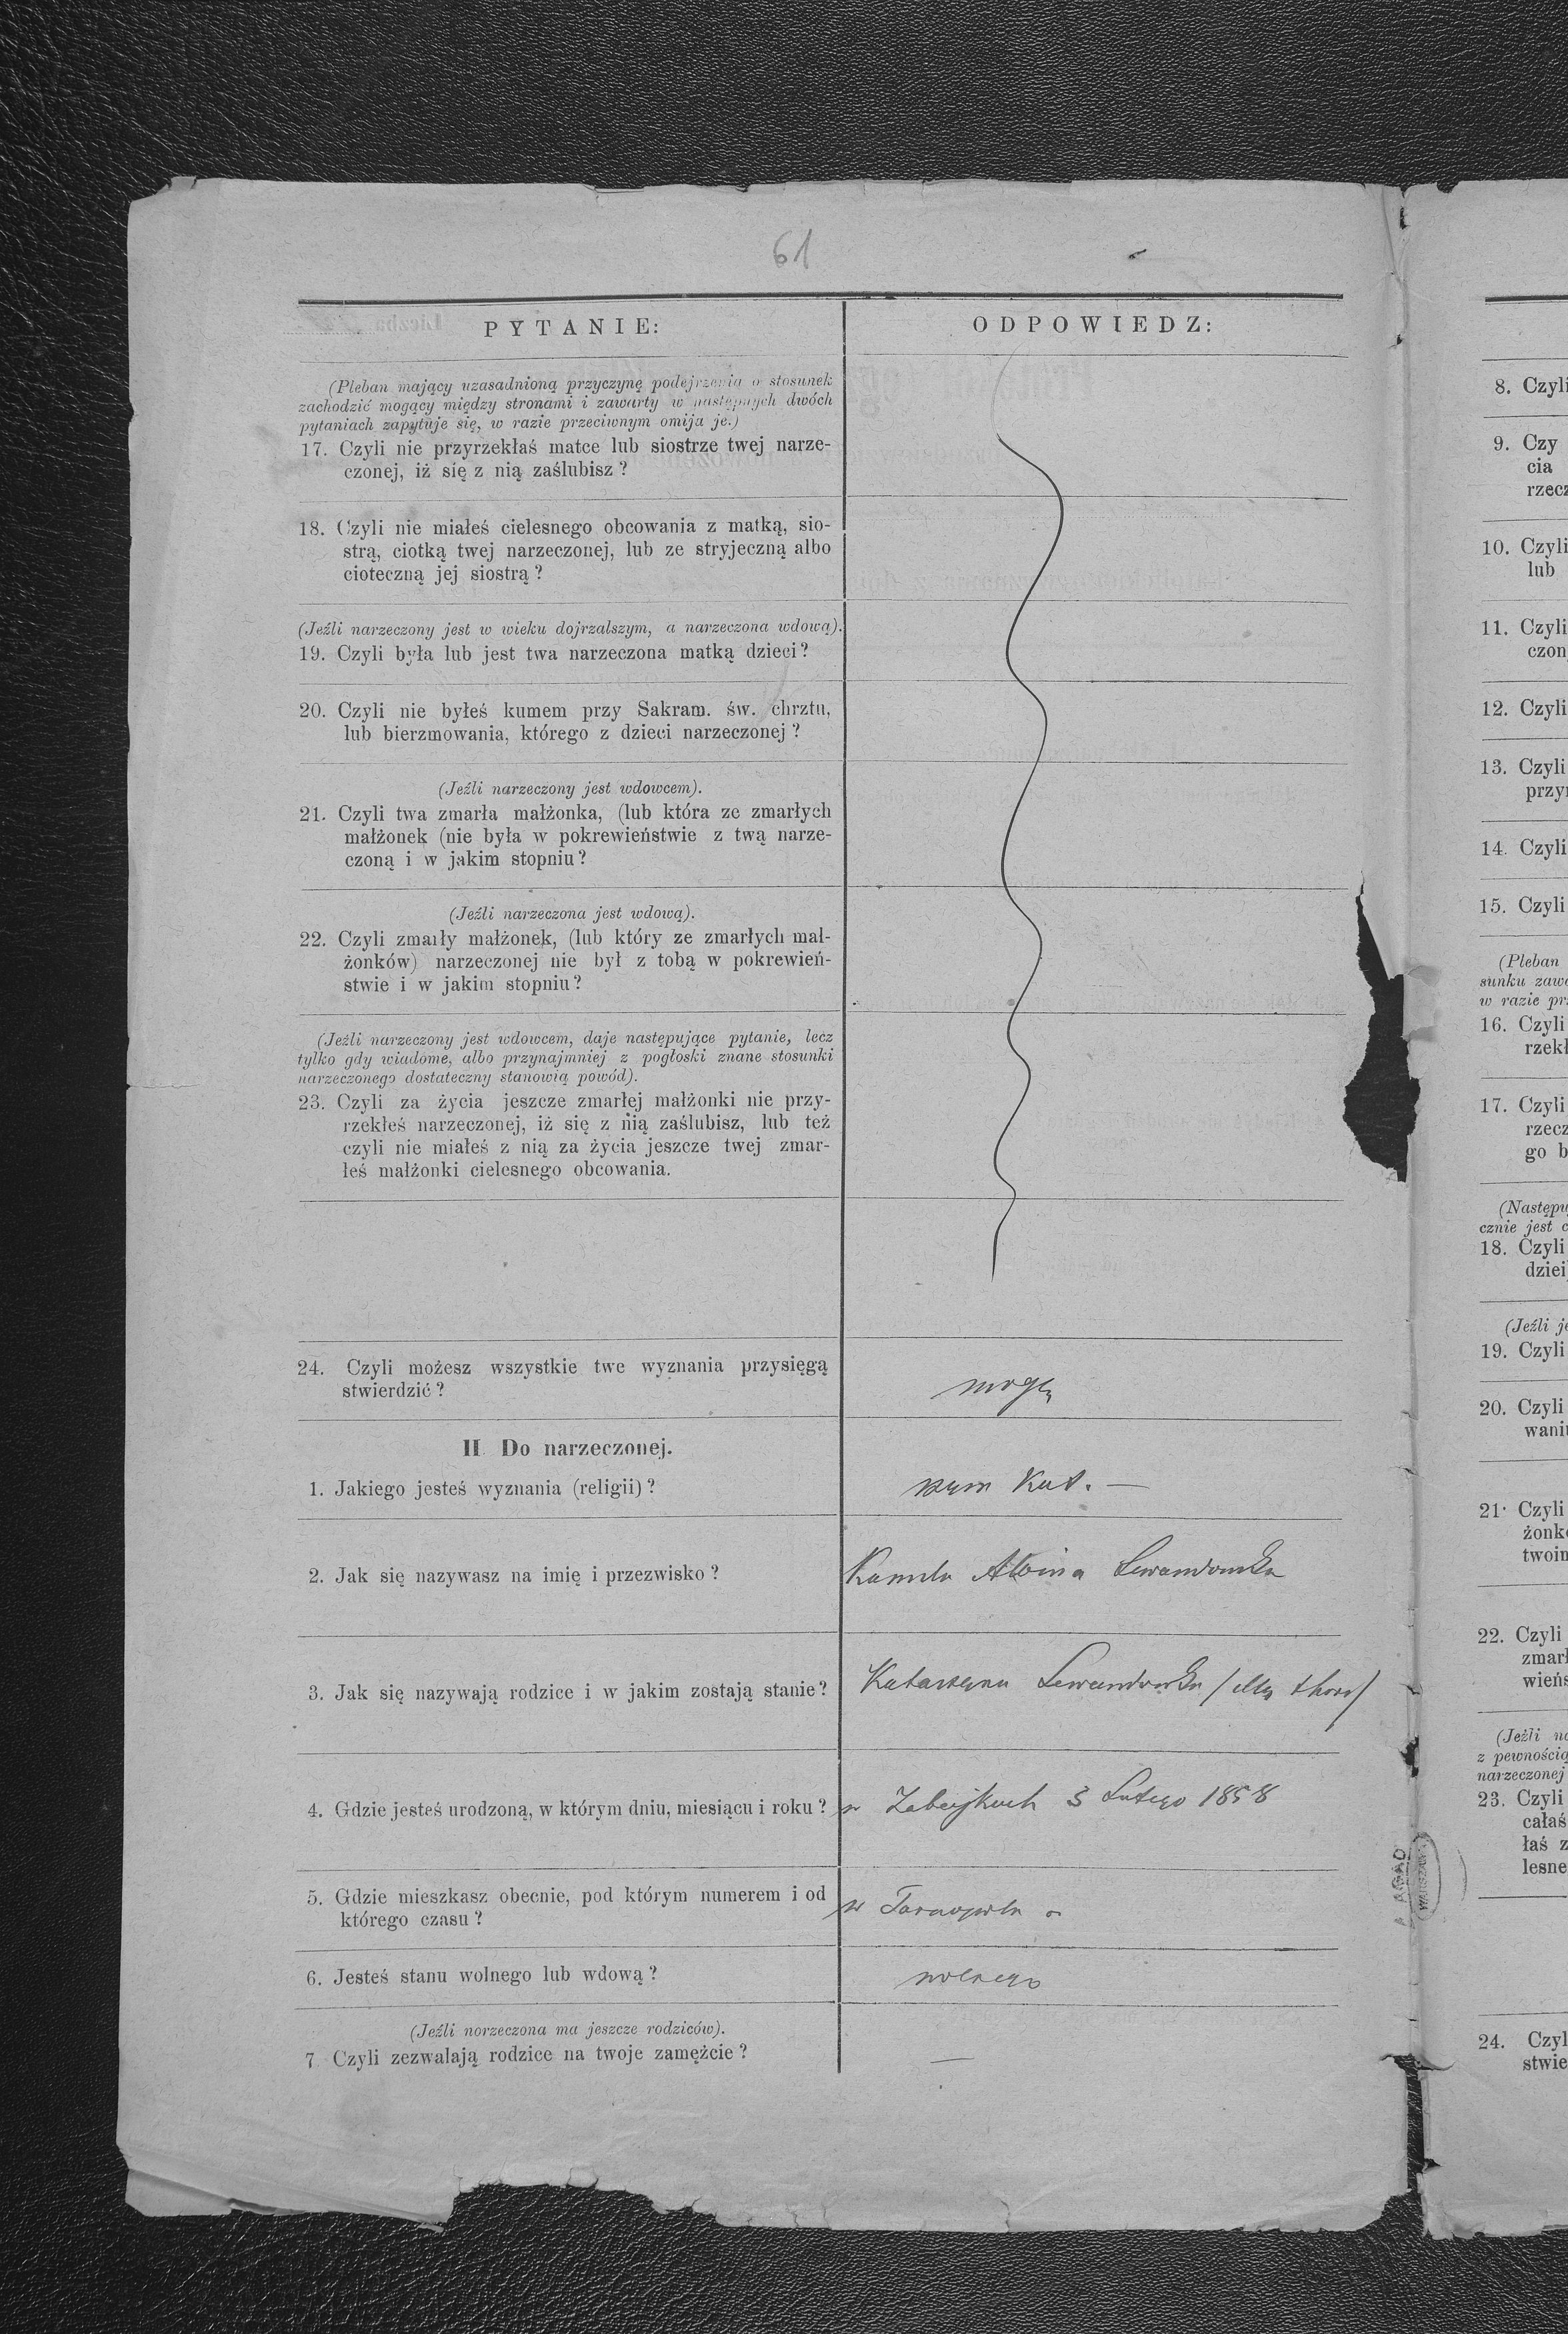 61
PYTANIE:
ODPOWIEDZ:
(Pleban mający uzasadnioną przyczynę podejrzenia o stosunek
zachodzić mogący między stronami i zawarty w następnych dwóch
pytaniach zapytuje się, w razie przeciwnym omija je.)
17. Czyli nie przyrzekłaś matce lub siostrze twej narze-
czonej, iż się z nią zaślubisz?
18. Czyli nie miałeś cielesnego obcowania z matką, sio-
strą, ciotką twej narzeczonej, lub ze stryjeczną albo
cioteczną jej siostrą?
(Jeźli narzeczony jest w wieku dojrzalszym, a narzeczona wdową).
19. Czyli była lub jest twa narzeczona matką dzieci?
20. Czyli nie byłeś kumem przy Sakram. św. chrztu,
lub bierzmowania, którego z dzieci narzeczonej?
(Jeźli narzeczony jest wdowcem).
21. Czyli twa zmarła małżonka, (lub która ze zmarłych
małżonek (nie była w pokrewieństwie z twą narze-
czoną i w jakim stopniu?
(Jeźli narzeczona jest wdową).
22. Czyli zmarły małżonek, (lub który ze zmarłych mał-
żonków) narzeczonej nie był z tobą w pokrewień-
stwie i w jakim stopniu?
(Jeźli narzeczony jest wdowcem, daje następujące pytanie, lecz
tylko gdy wiadome, albo przynajmniej z pogłoski znane stosunki
narzeczonego dostateczny stanowią powód).
23. Czyli za życia jeszcze zmarłej małżonki nie przy-
rzekłeś narzeczonej, iż się z nią zaślubisz, lub też
czyli nie miałeś z nią za życia jeszcze twej zmar-
łeś małżonki cielesnego obcowania.
24. Czyli możesz wszystkie twe wyznania przysięgą
stwierdzić?
mogę
II Do narzeczonej.
1. Jakiego jesteś wyznania (religii)?
rzym Kat. —
2. Jak się nazywasz na imię i przezwisko?
Kamila Albina Lewandowska
3. Jak się nazywają rodzice i w jakim zostają stanie?
Katarzyna Lewandowska
4. Gdzie jesteś urodzoną, w którym dniu, miesiącu i roku?
w Zabajkach 3 Lutego 1858
5. Gdzie mieszkasz obecnie, pod którym numerem i od
którego czasu?
w Tarnopolu
6. Jesteś stanu wolnego lub wdową?
wolnego
(Jeźli norzeczona ma jeszcze rodziców).
7 Czyli zezwalają rodzice na twoje zamęźcie?
—
AGAD
WARSZAWA
8. Czyli
9. Czy
cia
rzecz
10. Czyli
lub
11. Czyli
czon
12. Czyli
13. Czyli
przyr
14. Czyli
15. Czyli
(Pleban
sunku zawa
w razie prz
16. Czyli
rzekł
17. Czyli
rzecz
go b
(Następu
cznie jest c
18. Czyli
dziei
(Jeźli je
19. Czyli
20. Czyli
wani
21· Czyli
żonk
twoin
22. Czyli
zmarł
wieńs
(Jeźli na
z pewnością
narzeczonej
23. Czyli
całaś
łaś z
lesne
24. Czyl
stwie